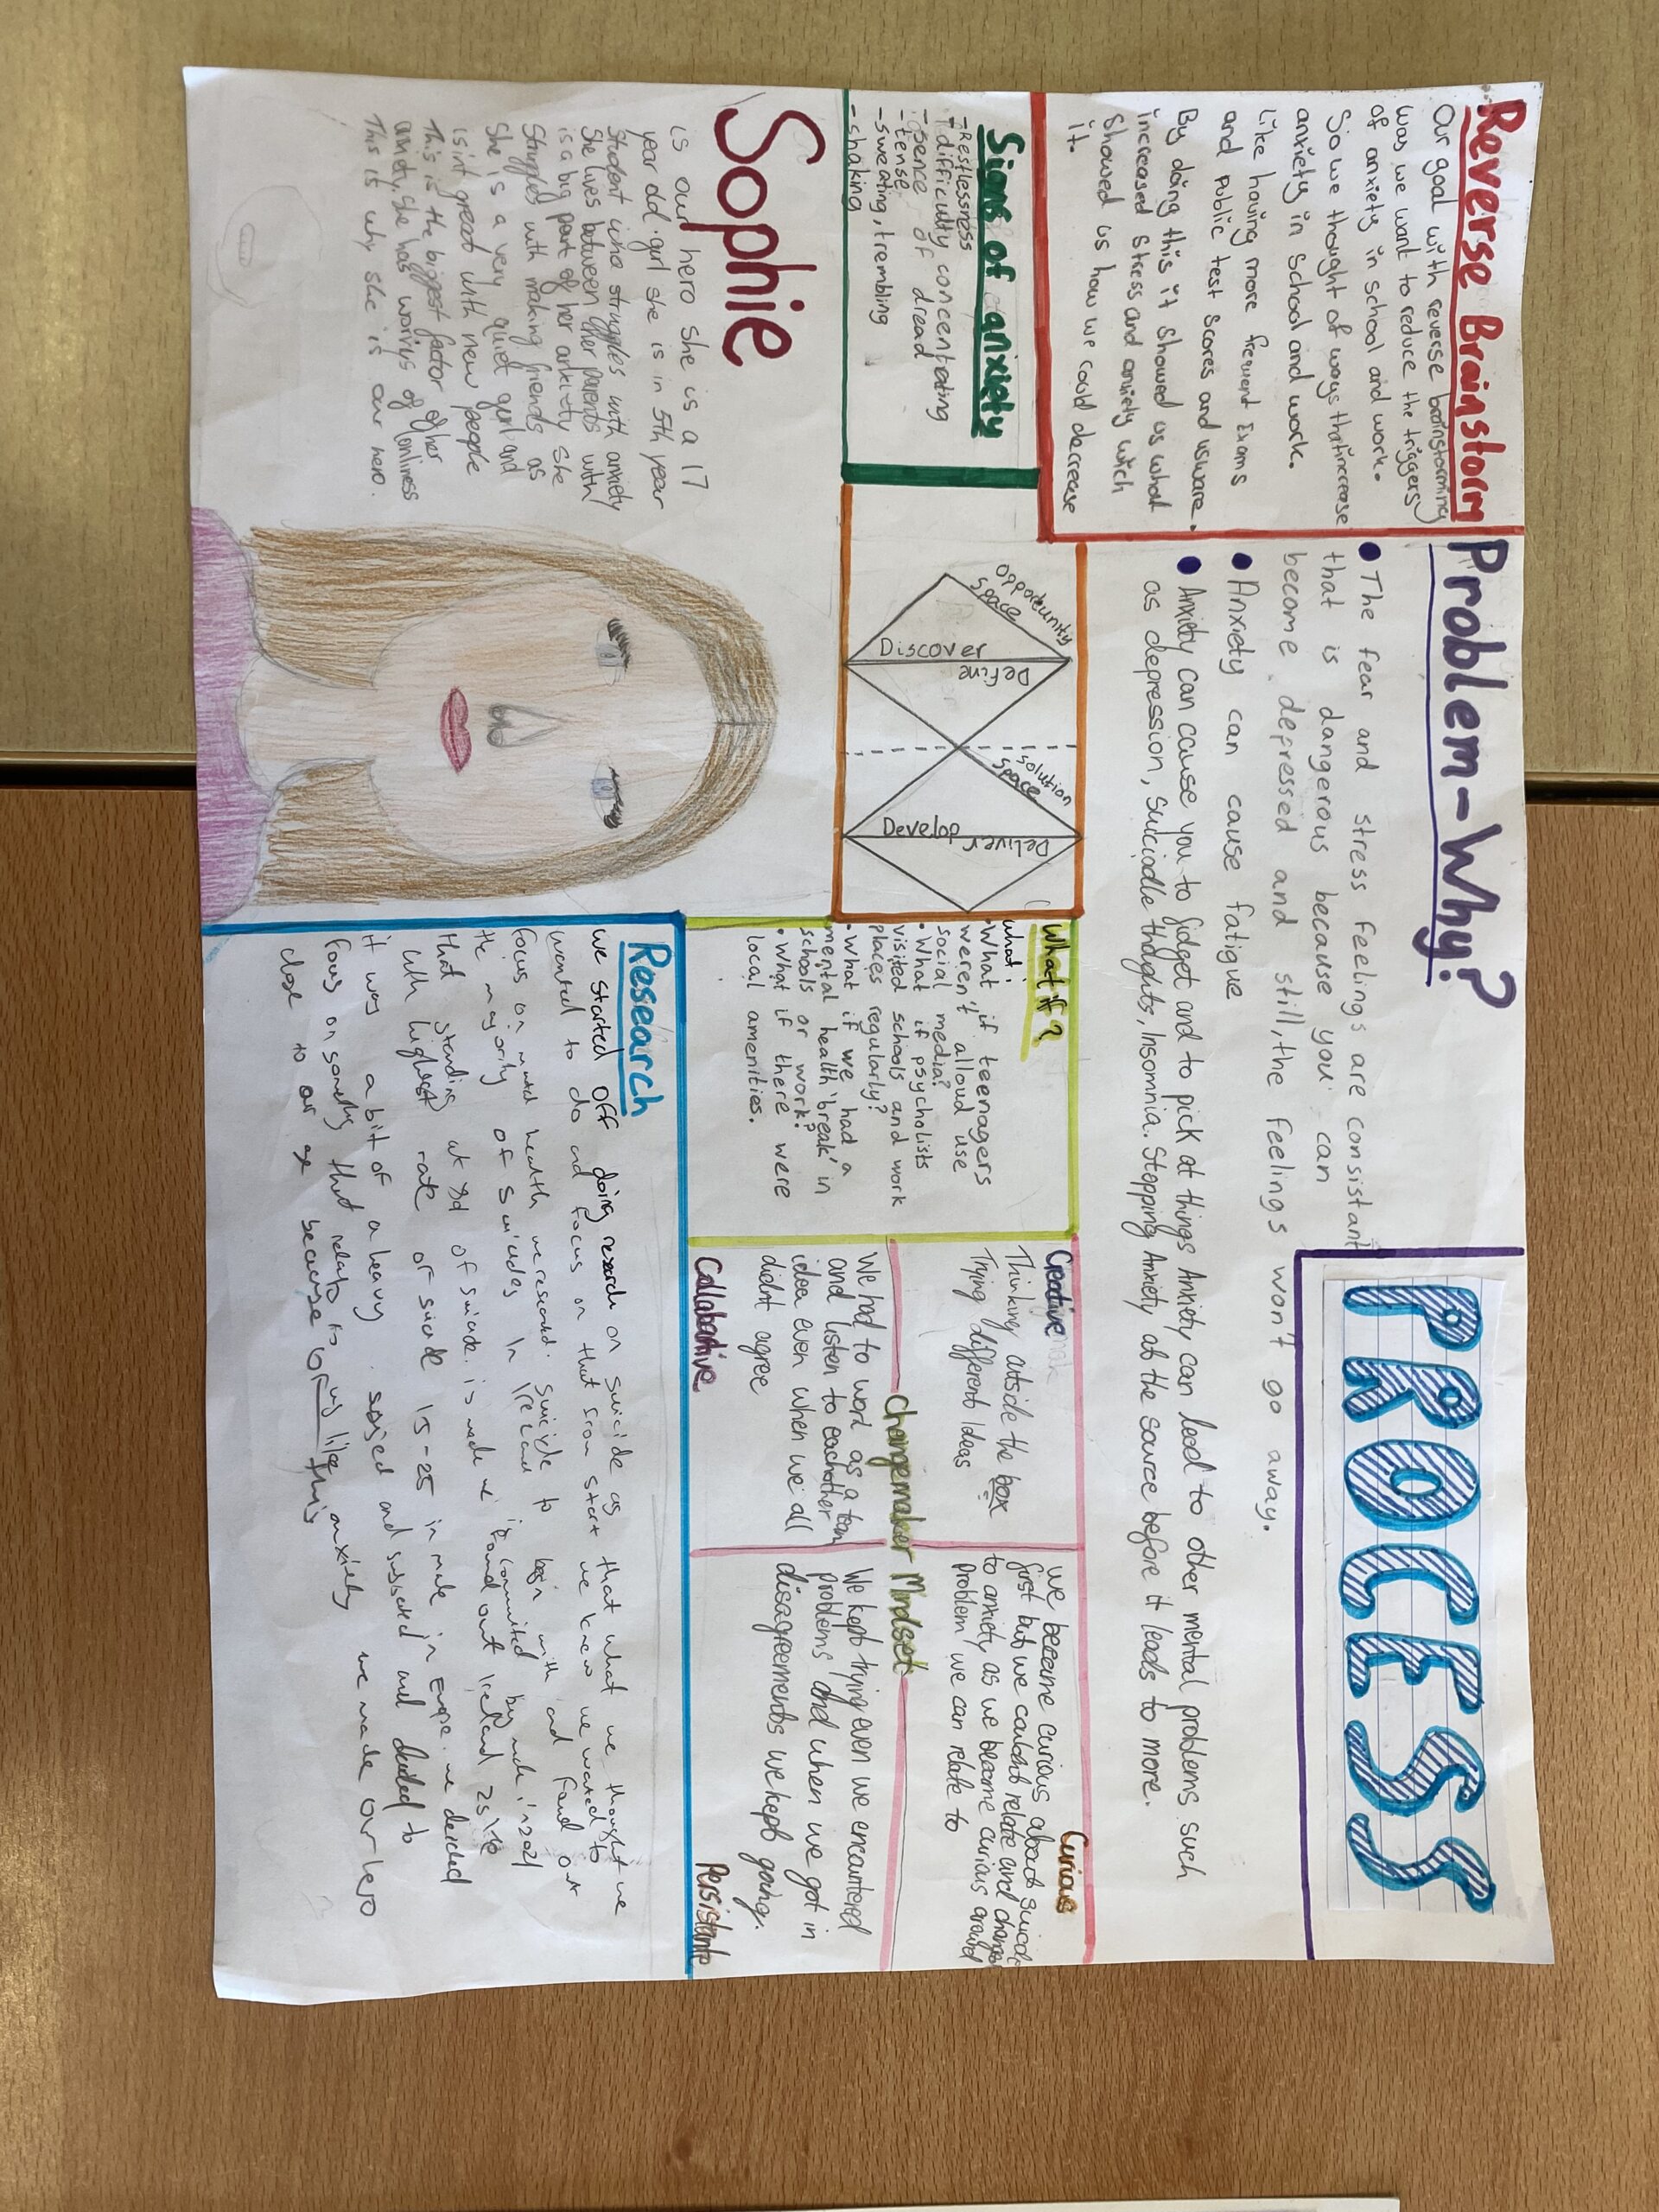 Reverse Brainstorm
Our goal with reverse brainstorming
was we want to reduce the triggers
of anxiety in school and work.
So we thought of ways that increase
anxiety in school and work.
Like having more frequent Exams
and public test scores and usware.
By doing this it showed us what
increased stress and anxiety wich
showed us how we could decrease
it.
Problem-Why?
The fear and stress feelings are consistant
that is dangerous because you can
become depressed and still, the feelings won't go away.
Anxiety can cause fatigue
Anxiety can cause you to fidget and to pick at things Anxiety can lead to other mental problems such
as depression, suiciadle thoughts, Insomnia. Stopping Anxiety at the source before it leads to more.
PROCESS
Signs of anxiety
-Restlessness
-difficulty concentrating
-sence of dread
-tense
-sweating, trembling
-shaking
opportunity
space
Discover
Define
solution
space
Develop
Deliver
What if?
what i
• What if teenagers
weren't alloud use
social media?
• What if psycholists
visited schools and work
places regularly?
• What if we had a
mental health 'break' in
schools or work?
• What if there were
local amenities.
Changemaker Mindset
Creative
Thinking outside the box
Trying different Ideas
Curious
we became curious about suicide
first but we couldnt relate and changed
to anxiety, as we become curious around
problem we can relate to
We had to word as a team
and listen to eachother
idea even when we all
didnt agree
Collabartive
We kept trying even we encountered
problems and when we got in
disagreements we kept going.
Persistante
Sophie
is our hero she is a 17
year old girl she is in 5th year
student who struggles with anxiety
She lives between her parents with
is a big part of her anxiety she
Struggles with making friends as
She is a very quiet girl and
isint great with new people
This is the biggest factor of her
anxiety. She has worrys of lonliness
This is why she is our hero.
Research
we started off doing research on suicide as that what we thought we
wanted to do and focus on that from start we knew we wanted to
focus on mental health we researched suicide to begin with and found out
the majority of suicides in Ireland is committed by male in 2021
that standing at of suicide is male we found out Ireland
with highest rate of suicide 15-25 in male in Europe we decided
it was a bit of a heavy subject and and decided to
focus on something that relate to us like anxiety we made our hero
close to our age because of this